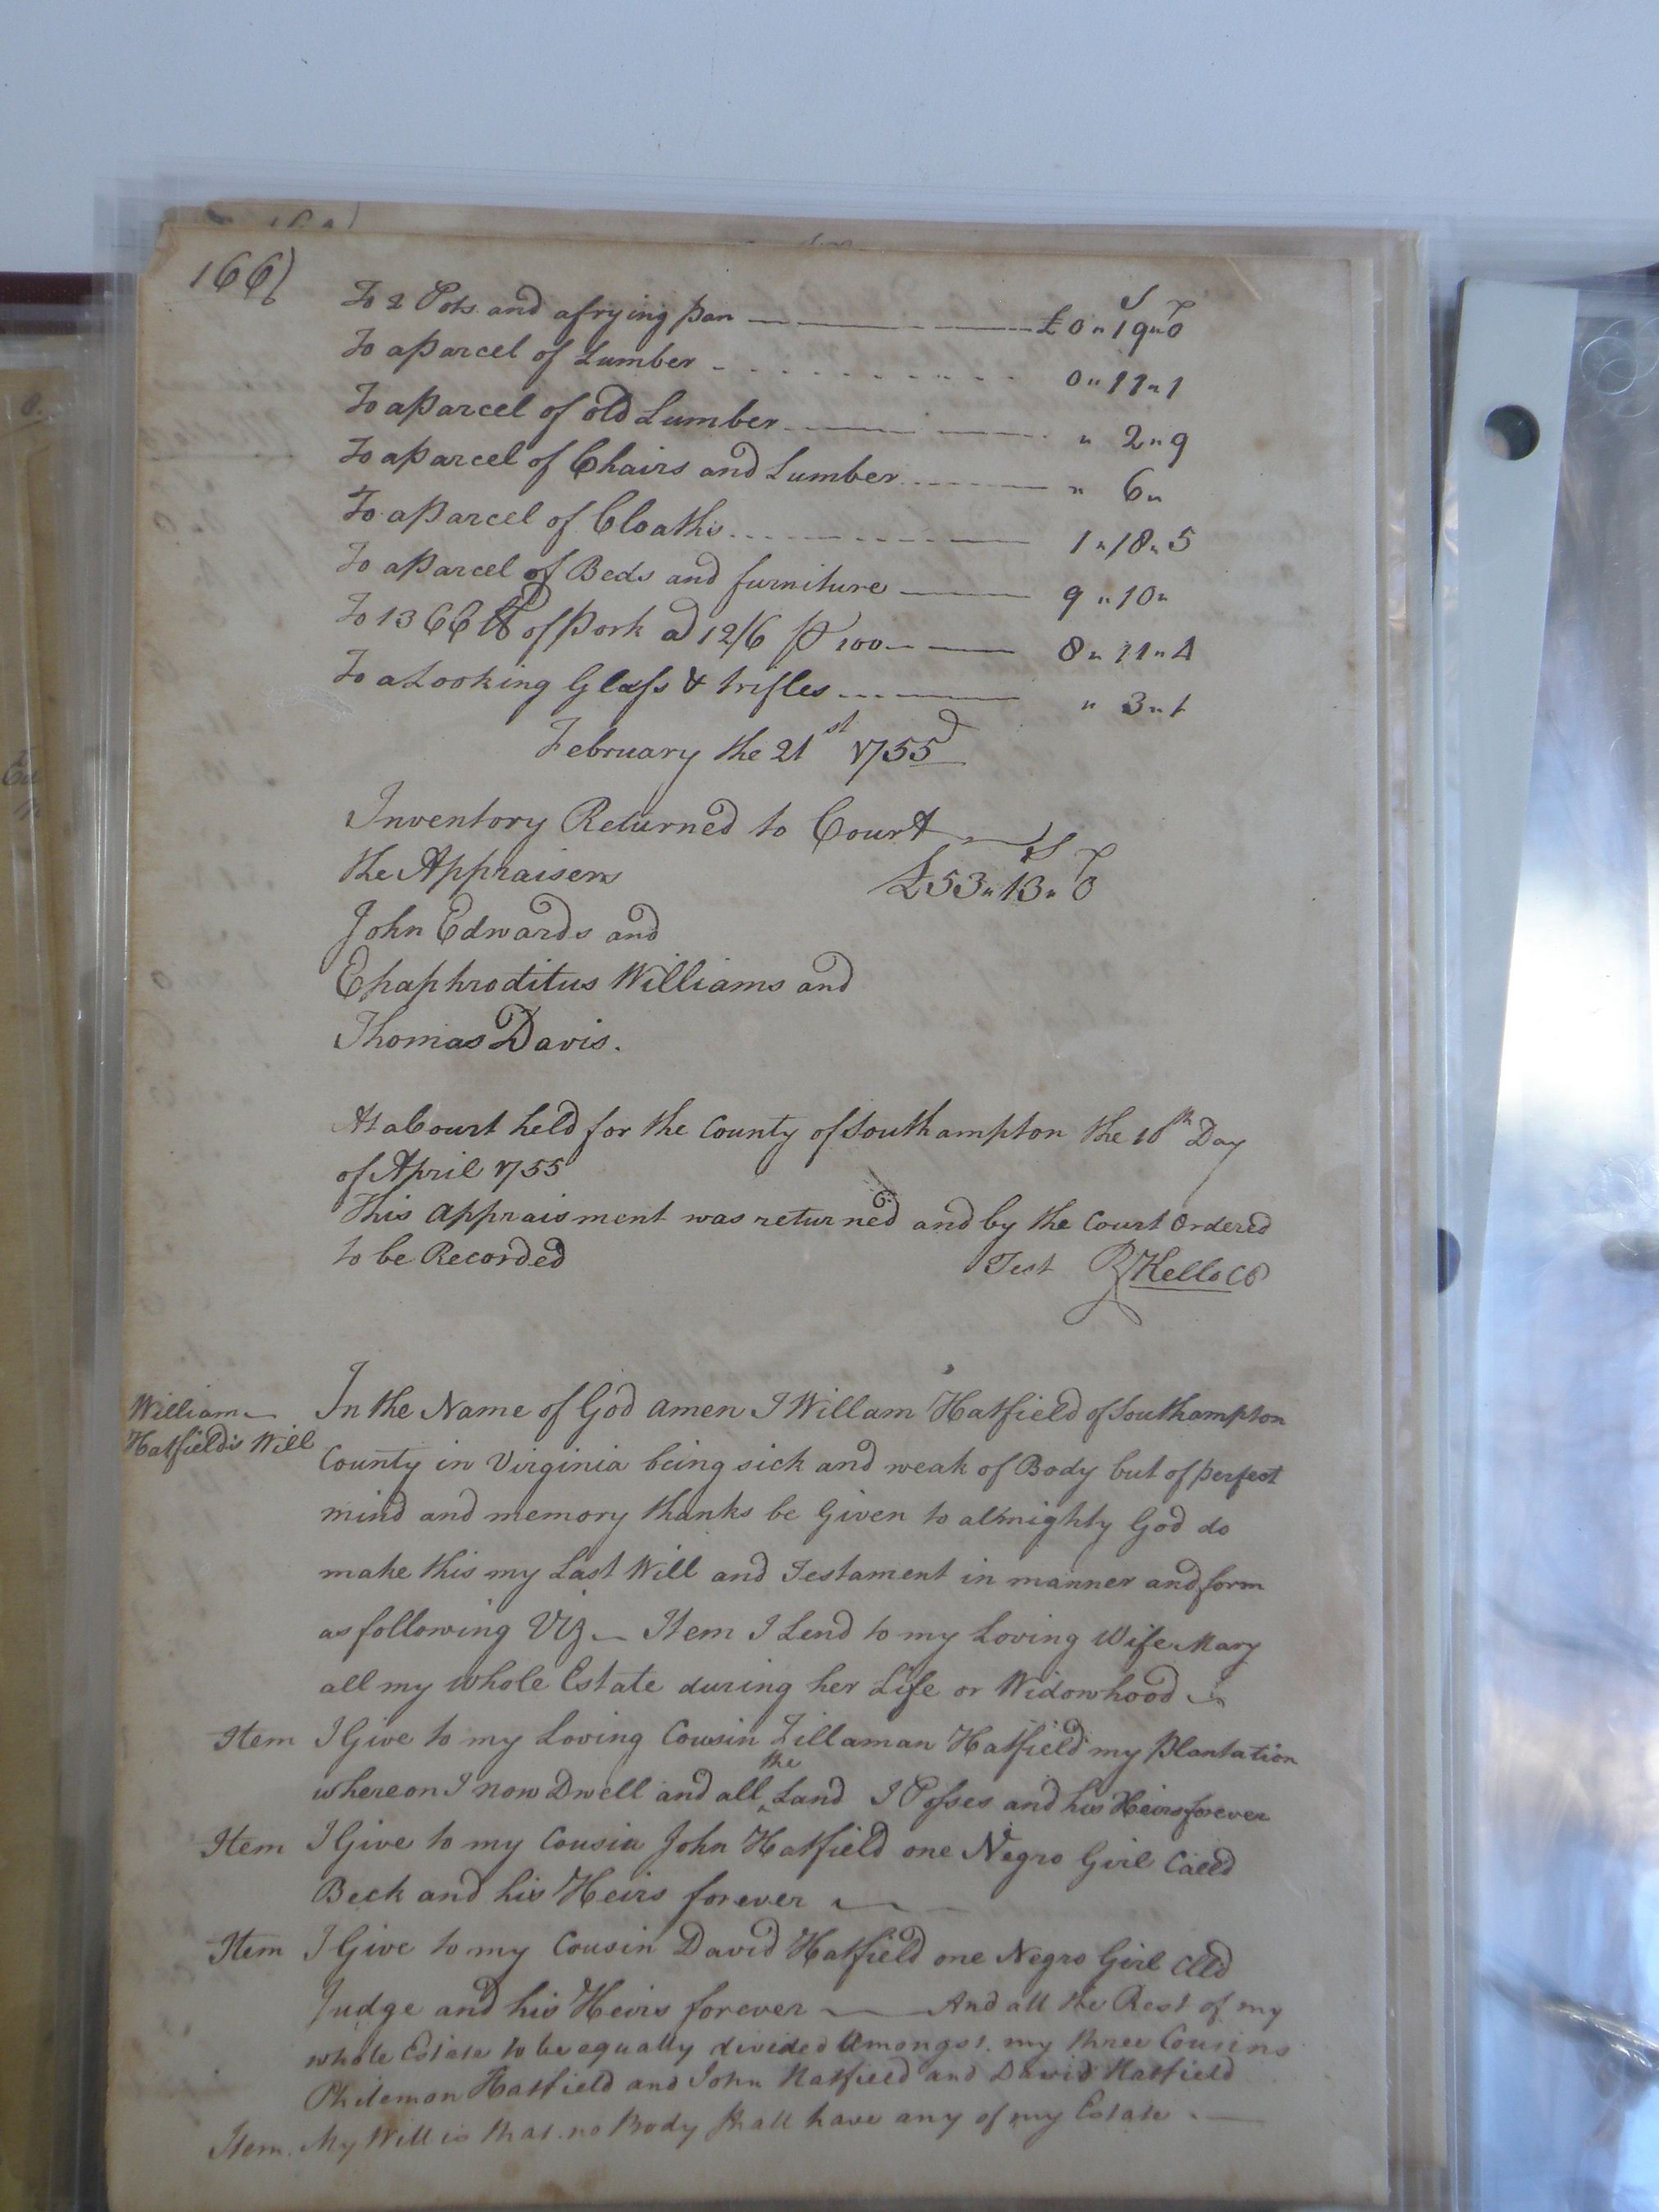 166)
To 2 Pots and a frying pan £ 0 " 19 " 0
To a Parcel of Lumber 0 " 11 " 1
To a Parcel of old Lumber " 2 " 9
To a Parcel of Chairs and Lumber " 6 "
To a Parcel of Cloaths 1 " 18 " 5
To a Parcel of Beds and furniture 9 " 10 "
To 1366 lb of Pork a 12/6 P 100 8 " 11 " 4
To a Looking Glass & trifles " 3 " 1
February the 21st 1755
Inventory Returned to Court
the Appraisers £53 " 13 " 0
John Edwards and
Ephaphroditus Williams and
Thomas Davis.
At a Court held for the County of Southampton the 10th Day
of April 1755
This appraisment was returned and by the Court Ordered
to be Recorded Test R Kello CC
William Hatfield's Will
In the Name of God amen I Willam Hatfield of Southampton
County in Virginia being sick and weak of Body but of perfect
mind and memory thanks be Given to almighty God do
make this my Last Will and Testament in manner and form
as following Viz — Item I Lend to my Loving Wife Mary
all my whole Estate during her Life or Widowhood
Item I Give to my Loving Cousin Fillaman Hatfield my Plantation
whereon I now Dwell and all the Land I Posses and his Heirs forever
Item I Give to my Cousin John Hatfield one Negro Girl Calld
Beck and his Heirs forever
Item I Give to my Cousin David Hatfield one Negro Girl Clld
Judge and his Heirs forever — And all the Rest of my
whole Estate to be equally divided Amongst my three Cousins
Philemon Hatfield and John Hatfield and David Hatfield
Item. My Will is that no Body shall have any of my Estate